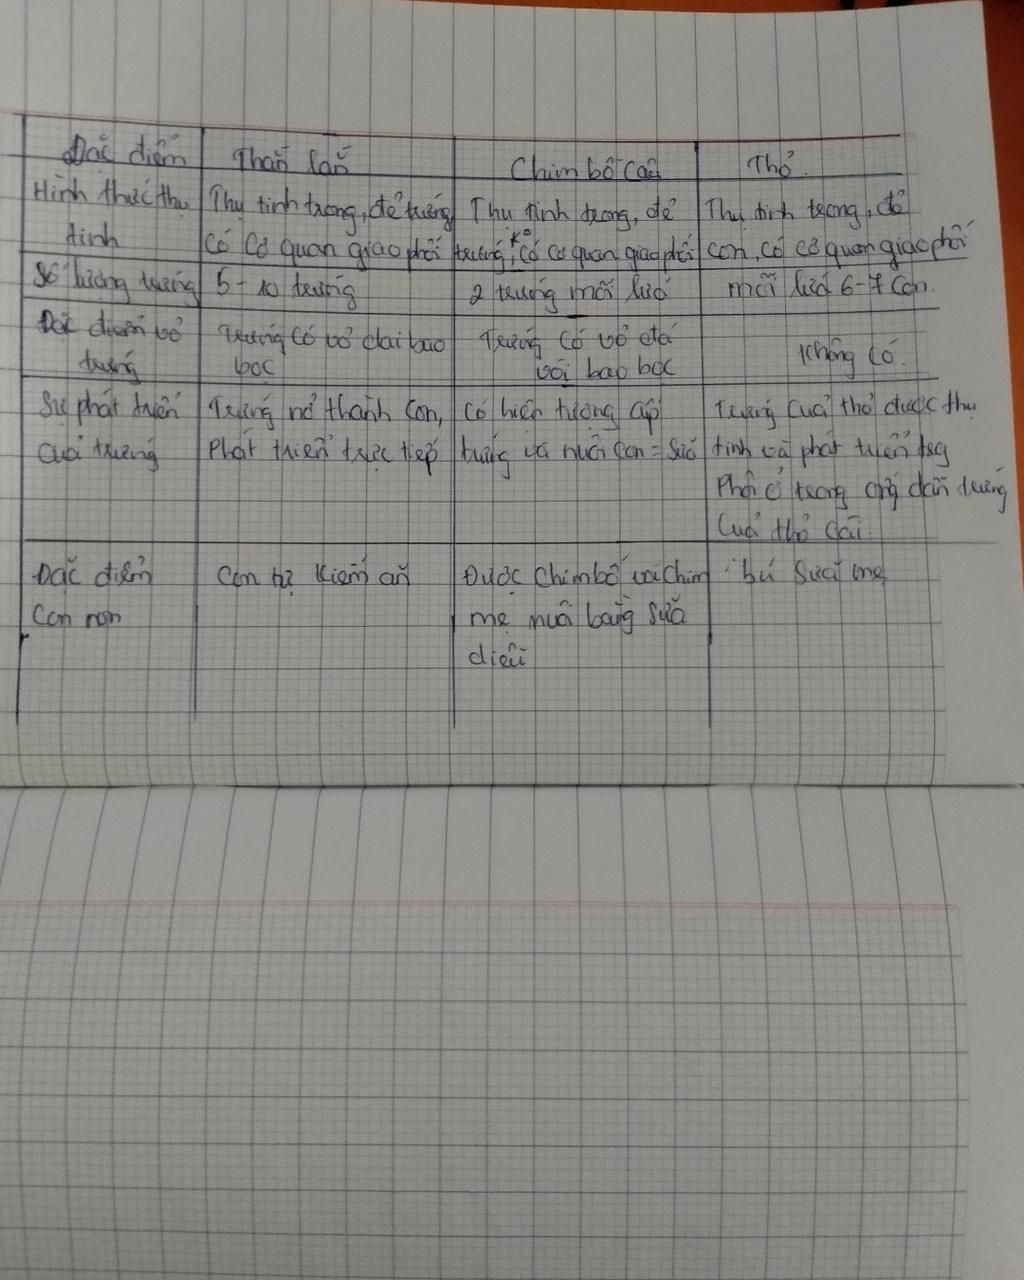 Đặc điểm
Thằn lằn
Chim bồ câu
Thỏ.
Hình thức thụ
tinh
Thụ tinh trong, đẻ trứng
có cơ quan giao phối
Thụ tinh trong, đẻ
trứng, Ko có cơ quan giao phối
Thụ tinh trong, đẻ
con, có cơ quan giao phối
Số lượng trứng
5-10 trứng
2 trứng mỗi lứa
mỗi lứa 6-7 con.
Đặc điểm vỏ
trứng
Trứng có vỏ dai bao
bọc
Trứng có vỏ đá
vôi bao bọc
không có.
Sự phát triển
của trứng
Trứng nở thành con,
phát triển trực tiếp
có hiện tượng ấp
trứng và nuôi con = sữa
Trứng của thỏ được thụ
tinh và phát triển
phôi ở trong ống dẫn trứng
của thỏ cái.
Đặc điểm
con non
con tự kiếm ăn
Được chim bố với chim
mẹ nuôi bằng sữa
diều
bú sữa mẹ